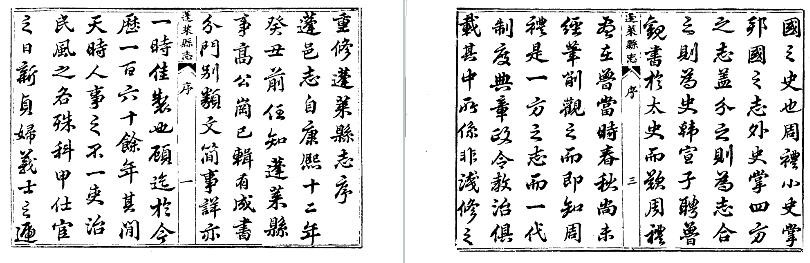 重修蓬萊縣志序
蓬邑志自康熙十二年
癸丑前任知蓬萊縣
事高公崗已輯有成書
分門別類文簡事詳亦
蓬萊縣志 序 一
一時佳製也顧迄於今
歷一百六十餘年其間
天時人事之不一吏治
民風之各殊科甲仕宦
之日新貞婦義士之遞
國之史也周禮小史掌
邦國之志外史掌四方
之志蓋分之則為志合
之則為史韓宣子聘魯
觀書於太史而歎周禮
蓬萊縣志 序 三
盡在魯當時春秋尚未
經筆削觀之而即知周
禮是一方之志而一代
制度典章政令教治俱
載其中所係非淺修之